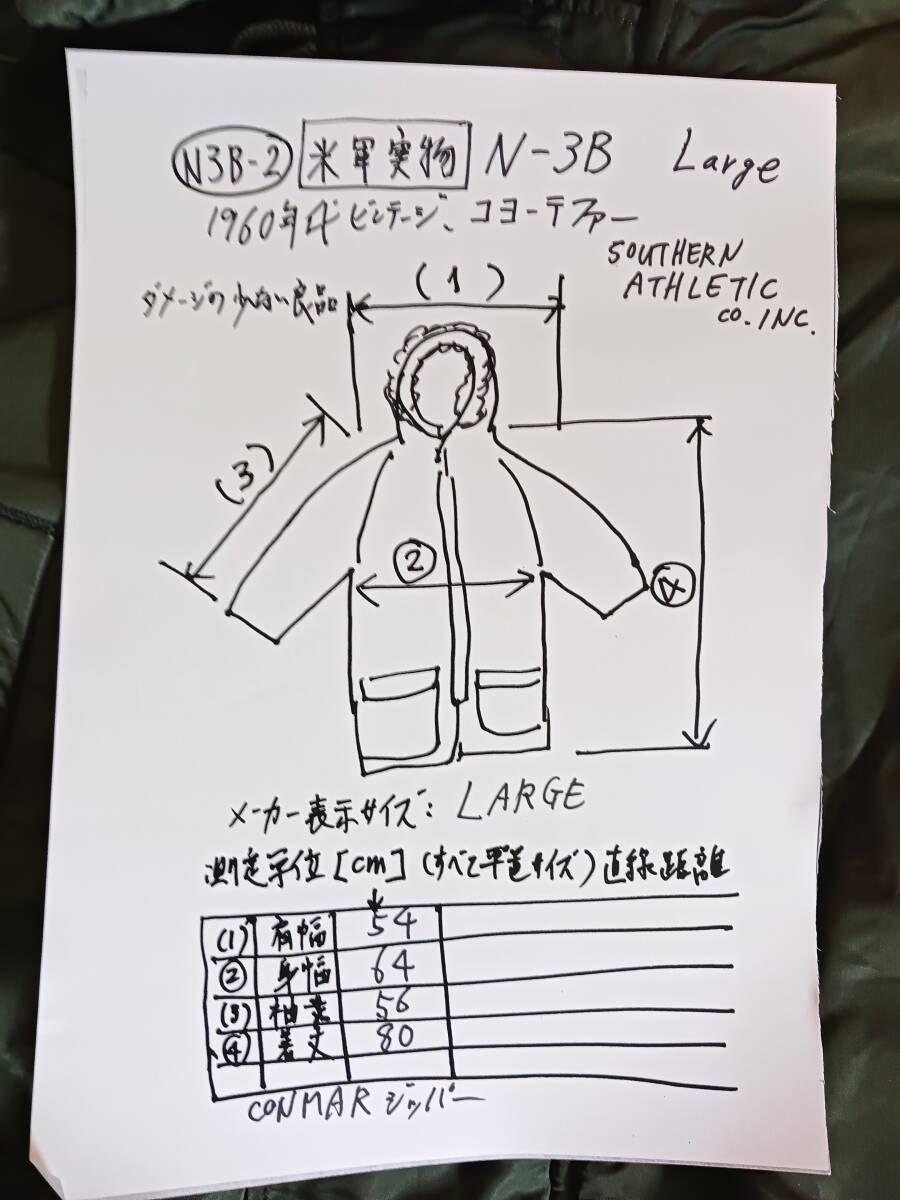 N3B-2 米軍実物 N-3B Large
1960年代ビンテージ、コヨーテファー
SOUTHERN
ATHLETIC
CO. INC.
ダメージの少ない良品
(1)
(3)
②
④
メーカー表示サイズ: LARGE
測定単位[cm](すべて平置サイズ)直線距離
(1) 肩幅 54
② 身幅 64
(3) 袖丈 56
④ 着丈 80
CONMAR ジッパー